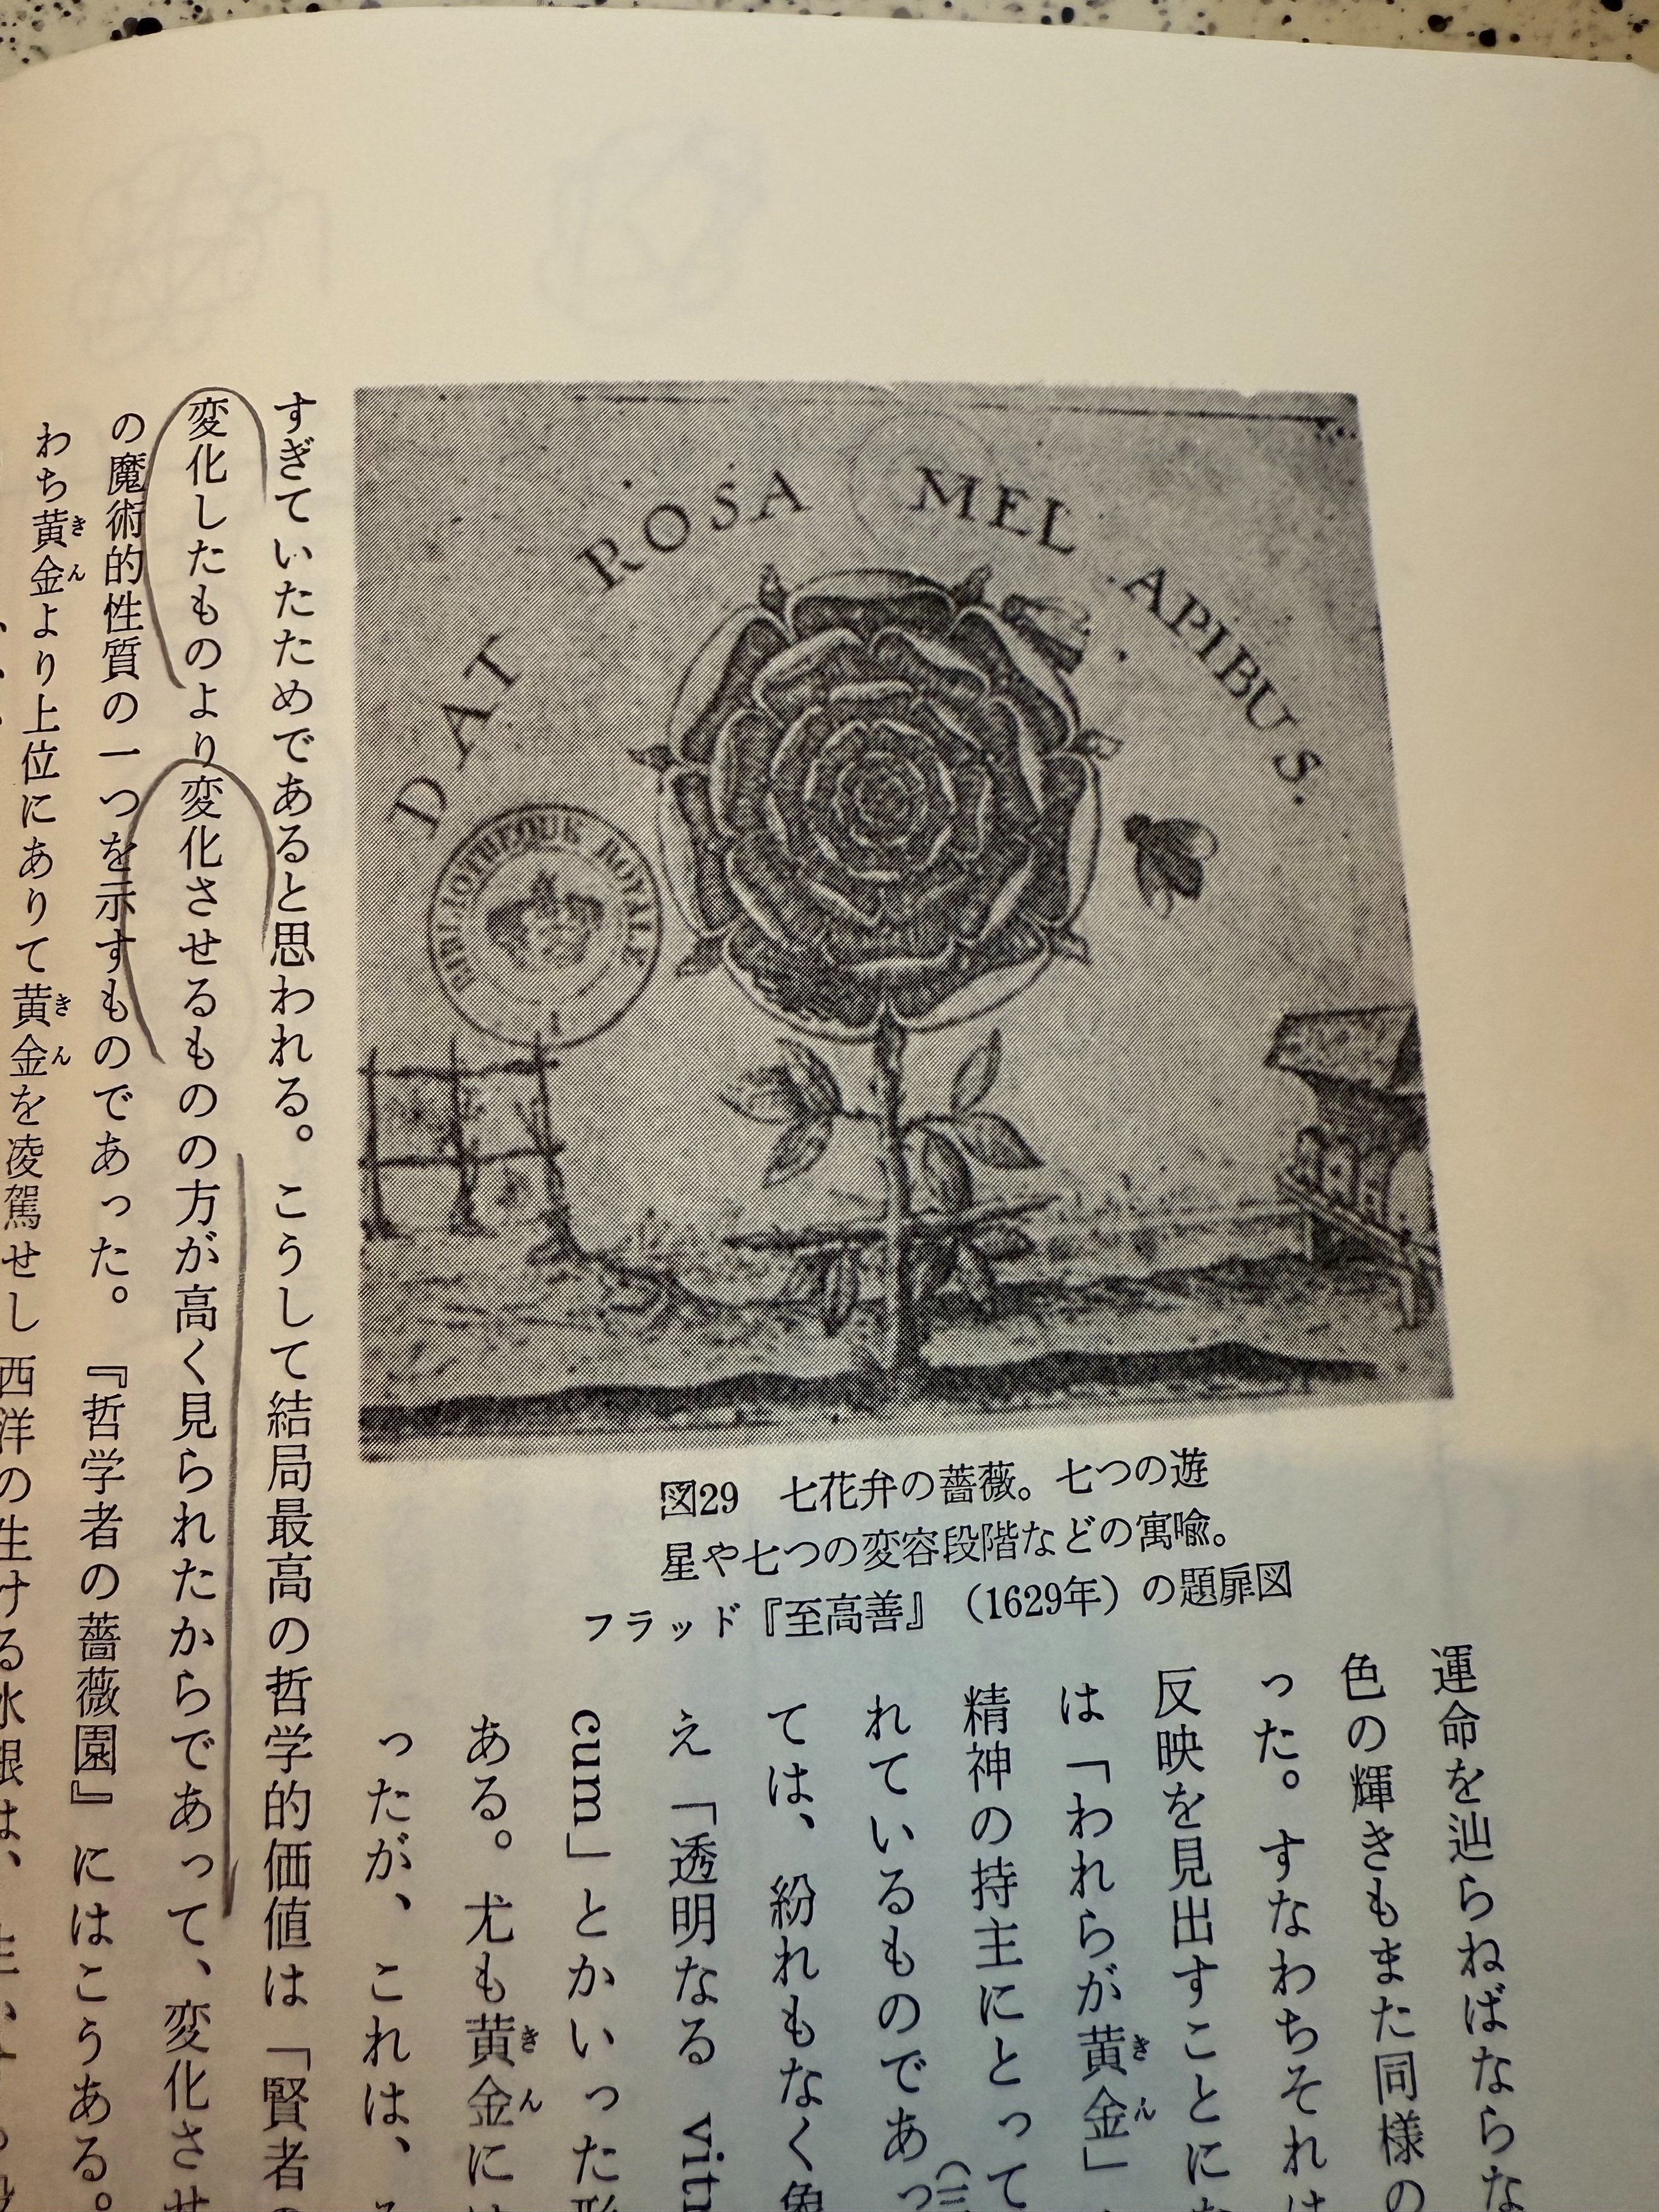 DAT ROSA MEL APIBUS.
BIBLIOTHEQUE ROYALE
図29　七花弁の薔薇。七つの遊
星や七つの変容段階などの寓喩。
フラッド『至高善』（1629年）の題扉図
運命を辿らねばならな
色の輝きもまた同様の
った。すなわちそれは
反映を見出すことにな
は「われらが黄金」
精神の持主にとって
れているものであっ
ては、紛れもなく象
え「透明なる vitr
cum」とかいった形
ある。尤も黄金には
ったが、これは、
すぎていたためであると思われる。こうして結局最高の哲学的価値は「賢者の
変化したものより変化させるものの方が高く見られたからであって、変化させ
の魔術的性質の一つを示すものであった。『哲学者の薔薇園』にはこうある。
わち黄金より上位にありて黄金を凌駕せし
西洋の生ける水銀は、